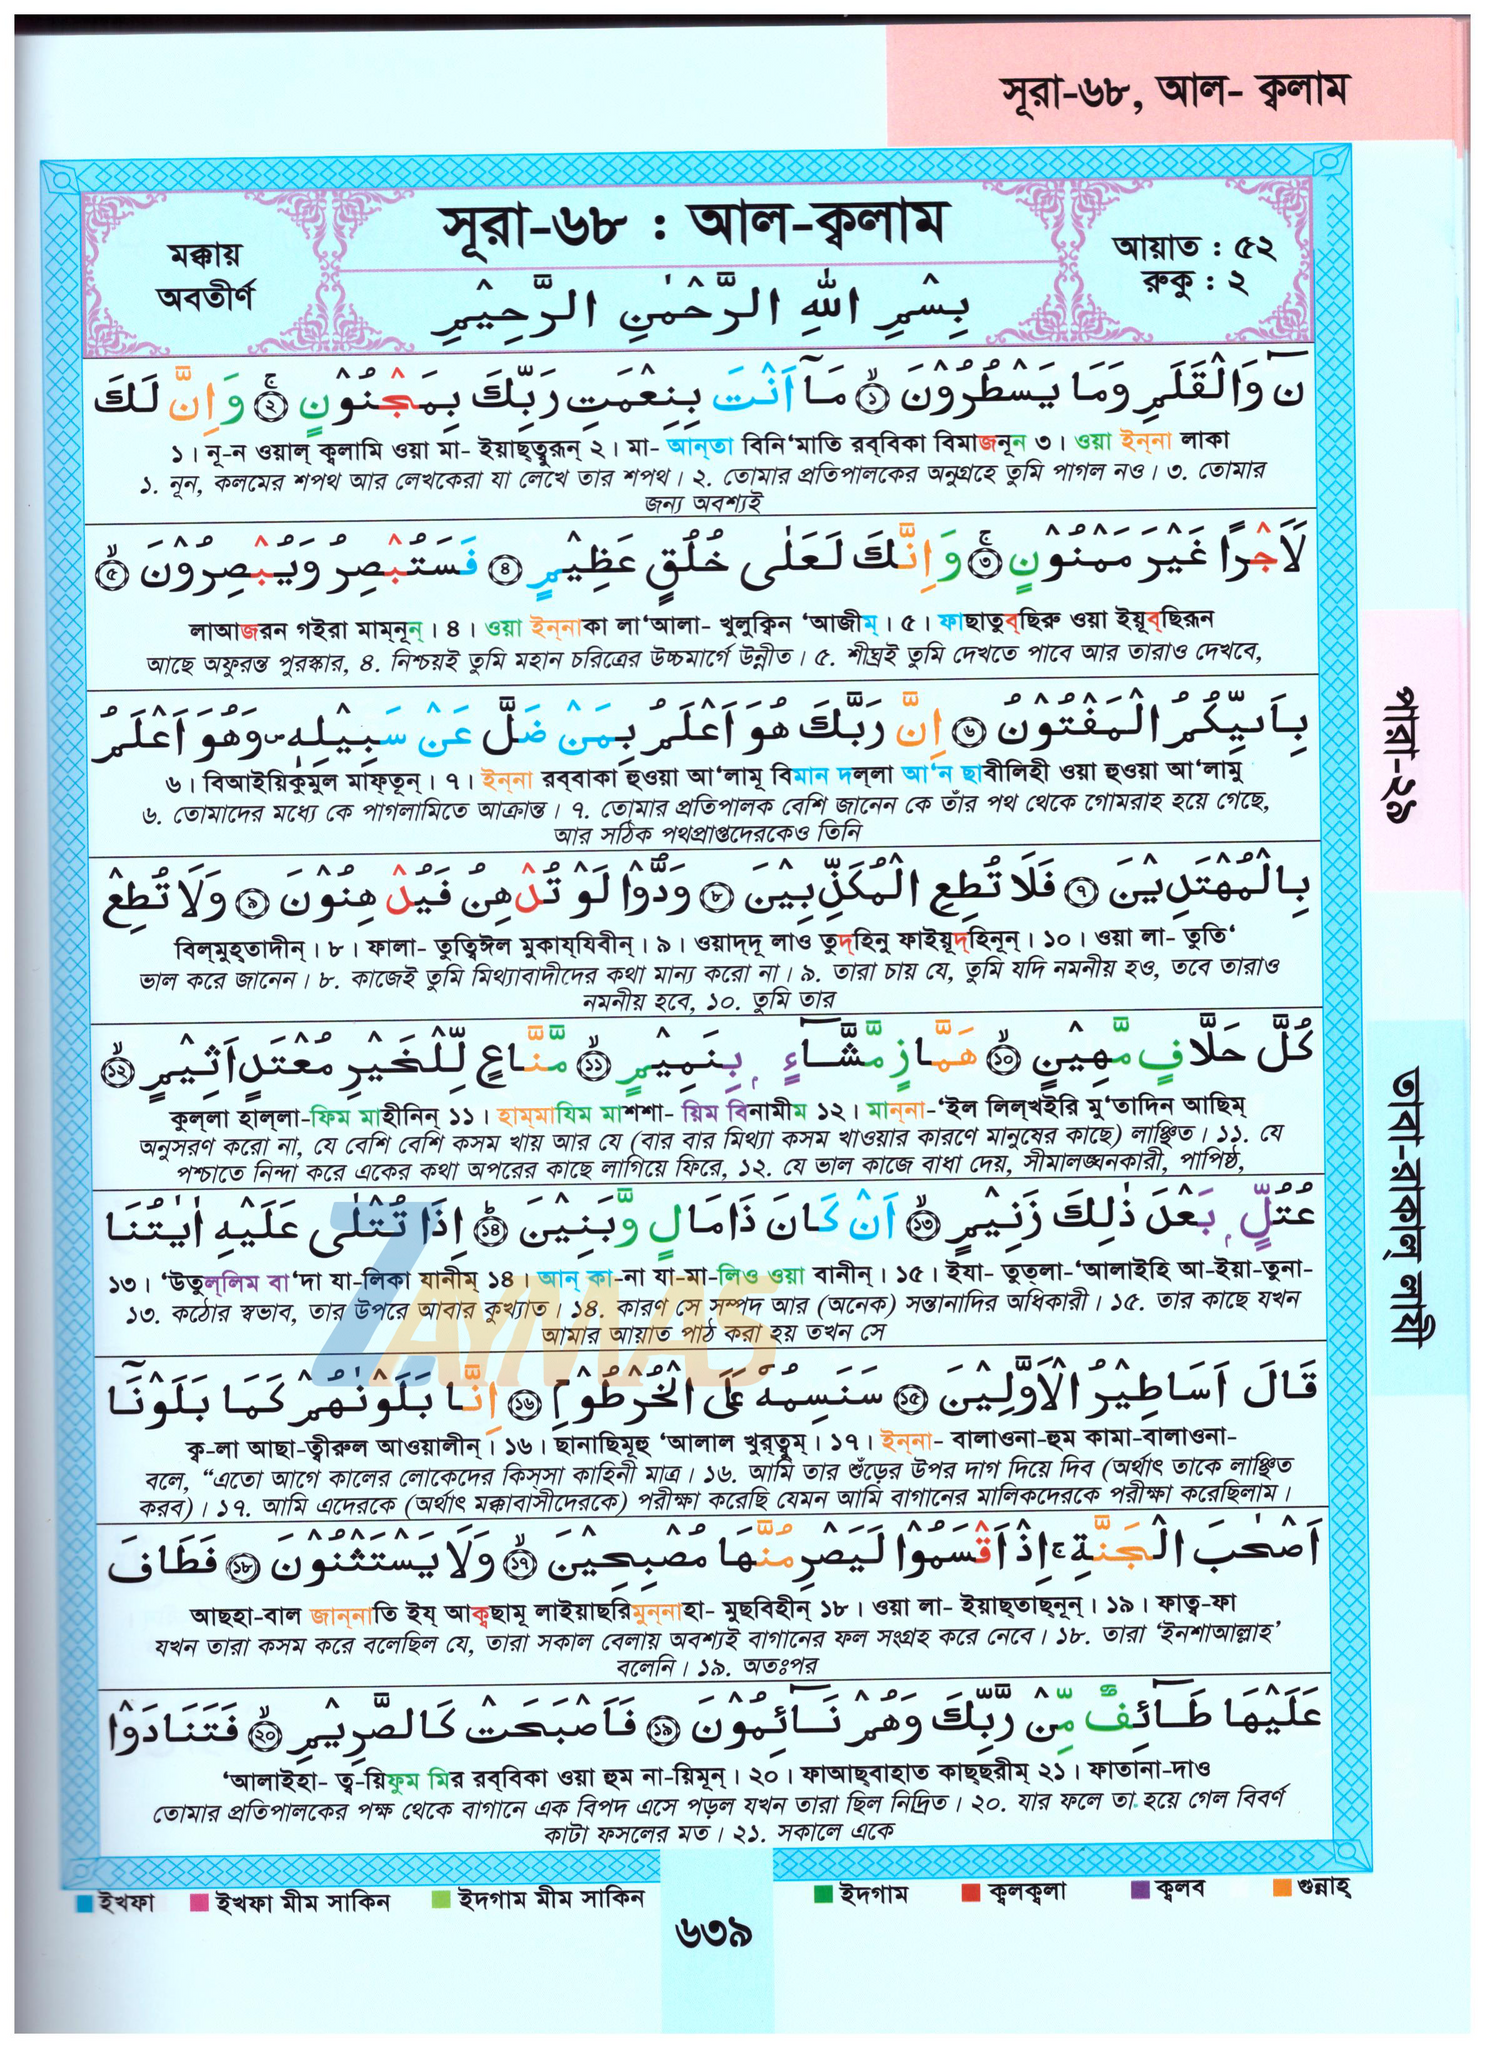 সূরা-৬৮, আল- ক্বলাম
সূরা-৬৮ : আল-ক্বলাম
মক্কায়
অবতীর্ণ
আয়াত : ৫২
রুকু : ২
بِسْمِ اللهِ الرَّحْمٰنِ الرَّحِيْمِ
نٓ وَالْقَلَمِ وَمَا يَسْطُرُوْنَ ۙ﴿١﴾ مَآ اَنْتَ بِنِعْمَتِ رَبِّكَ بِمَجْنُوْنٍ ۚ﴿٢﴾ وَاِنَّ لَكَ
১। নূ-ন ওয়াল্ ক্বলামি ওয়া মা- ইয়াছ্তুরূন্ ২। মা- আন্তা বিনি‘মাতি রব্বিকা বিমাজনূন ৩। ওয়া ইন্না লাকা
১. নূন, কলমের শপথ আর লেখকেরা যা লেখে তার শপথ। ২. তোমার প্রতিপালকের অনুগ্রহে তুমি পাগল নও। ৩. তোমার
জন্য অবশ্যই
لَاَجْرًا غَيْرَ مَمْنُوْنٍ ۚ﴿٣﴾ وَاِنَّكَ لَعَلٰى خُلُقٍ عَظِيْمٍ ﴿٤﴾ فَسَتُبْصِرُ وَيُبْصِرُوْنَ ۙ﴿٥﴾
লাআজরন গইরা মাম্নূন্। ৪। ওয়া ইন্নাকা লা‘আলা- খুলুক্বিন ‘আজীম্। ৫। ফাছাতুব্ছিরু ওয়া ইয়ূব্ছিরূন
আছে অফুরন্ত পুরস্কার, ৪. নিশ্চয়ই তুমি মহান চরিত্রের উচ্চমার্গে উন্নীত। ৫. শীঘ্রই তুমি দেখতে পাবে আর তারাও দেখবে,
بِاَىيِّكُمُ الْمَفْتُوْنُ ﴿٦﴾ اِنَّ رَبَّكَ هُوَ اَعْلَمُ بِمَنْ ضَلَّ عَنْ سَبِيْلِهٖ ۖ وَهُوَ اَعْلَمُ
৬। বিআইয়িকুমুল মাফ্তূন্। ৭। ইন্না রব্বাকা হুওয়া আ‘লামূ বিমান দল্লা আ‘ন ছাবীলিহী ওয়া হুওয়া আ‘লামু
৬. তোমাদের মধ্যে কে পাগলামিতে আক্রান্ত। ৭. তোমার প্রতিপালক বেশি জানেন কে তাঁর পথ থেকে গোমরাহ হয়ে গেছে,
আর সঠিক পথপ্রাপ্তদেরকেও তিনি
بِالْمُهْتَدِيْنَ ﴿٧﴾ فَلَا تُطِعِ الْمُكَذِّبِيْنَ ﴿٨﴾ وَدُّوْا لَوْ تُدْهِنُ فَيُدْهِنُوْنَ ﴿٩﴾ وَلَا تُطِعْ
বিল্মুহ্তাদীন্। ৮। ফালা- তুত্বিঈল মুকায্যিবীন্। ৯। ওয়াদ্দূ লাও তুদ্হিনু ফাইয়ূদ্হিনূন্। ১০। ওয়া লা- তুতি‘
ভাল করে জানেন। ৮. কাজেই তুমি মিথ্যাবাদীদের কথা মান্য করো না। ৯. তারা চায় যে, তুমি যদি নমনীয় হও, তবে তারাও
নমনীয় হবে, ১০. তুমি তার
كُلَّ حَلَّافٍ مَّهِيْنٍ ۙ﴿١٠﴾ هَمَّازٍ مَّشَّآءٍۭ بِنَمِيْمٍ ۙ﴿١١﴾ مَّنَّاعٍ لِّلْخَيْرِ مُعْتَدٍ اَثِيْمٍ ۙ﴿١٢﴾
কুল্লা হাল্লা-ফিম মাহীনিন্ ১১। হাম্মাযিম মাশশা- য়িম বিনামীম ১২। মান্না-‘ইল লিল্খইরি মু‘তাদিন আছিম্
অনুসরণ করো না, যে বেশি বেশি কসম খায় আর যে (বার বার মিথ্যা কসম খাওয়ার কারণে মানুষের কাছে) লাঞ্ছিত। ১১. যে
পশ্চাতে নিন্দা করে একের কথা অপরের কাছে লাগিয়ে ফিরে, ১২. যে ভাল কাজে বাধা দেয়, সীমালঙ্ঘনকারী, পাপিষ্ঠ,
عُتُلٍّۭ بَعْدَ ذٰلِكَ زَنِيْمٍ ۙ﴿١٣﴾ اَنْ كَانَ ذَا مَالٍ وَّبَنِيْنَ ؕ﴿١٤﴾ اِذَا تُتْلٰى عَلَيْهِ اٰيٰتُنَا
১৩। ‘উতুল্লিম বা‘দা যা-লিকা যানীম্ ১৪। আন্ কা-না যা-মা-লিও ওয়া বানীন্। ১৫। ইযা- তুত্লা-‘আলাইহি আ-ইয়া-তুনা-
১৩. কঠোর স্বভাব, তার উপরে আবার কুখ্যাত। ১৪. কারণ সে সম্পদ আর (অনেক) সন্তানাদির অধিকারী। ১৫. তার কাছে যখন
আমার আয়াত পাঠ করা হয় তখন সে
ZAYMAS
قَالَ اَسَاطِيْرُ الْاَوَّلِيْنَ ﴿١٥﴾ سَنَسِمُهٗ عَلَى الْخُرْطُوْمِ ﴿١٦﴾ اِنَّا بَلَوْنٰهُمْ كَمَا بَلَوْنَآ
ক্ব-লা আছা-ত্বীরুল আওয়ালীন্। ১৬। ছানাছিমূহু ‘আলাল খুর্ত্বূম্। ১৭। ইন্না- বালাওনা-হুম কামা-বালাওনা-
বলে, “এতো আগে কালের লোকেদের কিস্সা কাহিনী মাত্র। ১৬. আমি তার শুঁড়ের উপর দাগ দিয়ে দিব (অর্থাৎ তাকে লাঞ্ছিত
করব)। ১৭. আমি এদেরকে (অর্থাৎ মক্কাবাসীদেরকে) পরীক্ষা করেছি যেমন আমি বাগানের মালিকদেরকে পরীক্ষা করেছিলাম।
اَصْحٰبَ الْجَنَّةِ ۚ اِذْ اَقْسَمُوْا لَيَصْرِمُنَّهَا مُصْبِحِيْنَ ۙ﴿١٧﴾ وَلَا يَسْتَثْنُوْنَ ﴿١٨﴾ فَطَافَ
আছহা-বাল জান্নাতি ইয্ আক্বছামূ লাইয়াছরিমুন্নাহা- মুছবিহীন্ ১৮। ওয়া লা- ইয়াছ্তাছ্নূন্। ১৯। ফাত্ব-ফা
যখন তারা কসম করে বলেছিল যে, তারা সকাল বেলায় অবশ্যই বাগানের ফল সংগ্রহ করে নেবে। ১৮. তারা ‘ইনশাআল্লাহ’
বলেনি। ১৯. অতঃপর
عَلَيْهَا طَآئِفٌ مِّنْ رَّبِّكَ وَهُمْ نَآئِمُوْنَ ﴿١٩﴾ فَاَصْبَحَتْ كَالصَّرِيْمِ ۙ﴿٢٠﴾ فَتَنَادَوْا
‘আলাইহা- ত্ব-য়িফুম মির রব্বিকা ওয়া হুম না-য়িমূন্। ২০। ফাআছ্বাহাত কাছ্ছরীম্ ২১। ফাতানা-দাও
তোমার প্রতিপালকের পক্ষ থেকে বাগানে এক বিপদ এসে পড়ল যখন তারা ছিল নিদ্রিত। ২০. যার ফলে তা হয়ে গেল বিবর্ণ
কাটা ফসলের মত। ২১. সকালে একে
পারা-২৯
তাবা-রাকাল্ লাযী
ইখফা ইখফা মীম সাকিন ইদগাম মীম সাকিন ইদগাম ক্বলক্বলা ক্বলব গুন্নাহ্
৬৩৯